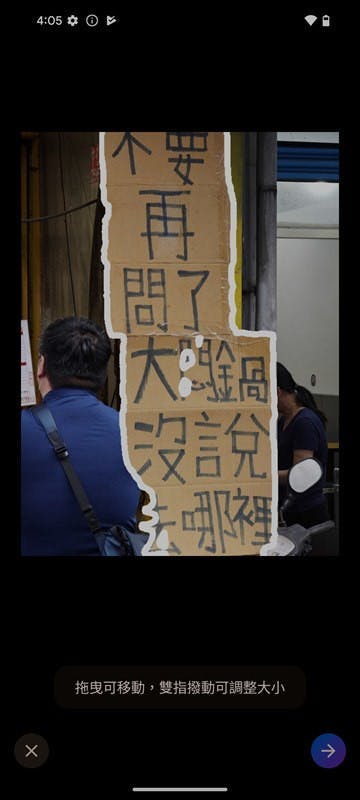 4:05
不要
再
問了
大
鍋
沒說
去哪裡
拖曳可移動，雙指撥動可調整大小